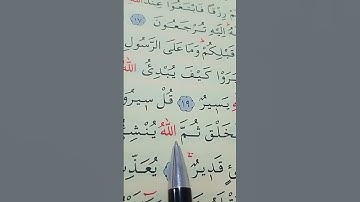 مْ رِزْقًا فَابْتَغُوا عِنْدَ اللّٰهِ
هُ اِلَيْهِ تُرْجَعُونَ ﴿١٧﴾
قَبْلِكُمْ وَمَا عَلَى الرَّسُولِ
يَرَوْا كَيْفَ يُبْدِئُ اللّٰهُ
يَسِيرٌ ﴿١٩﴾ قُلْ سِيرُوا
الْخَلْقَ ثُمَّ اللّٰهُ يُنْشِئُ
قَدِيرٌ يُعَذِّبُ